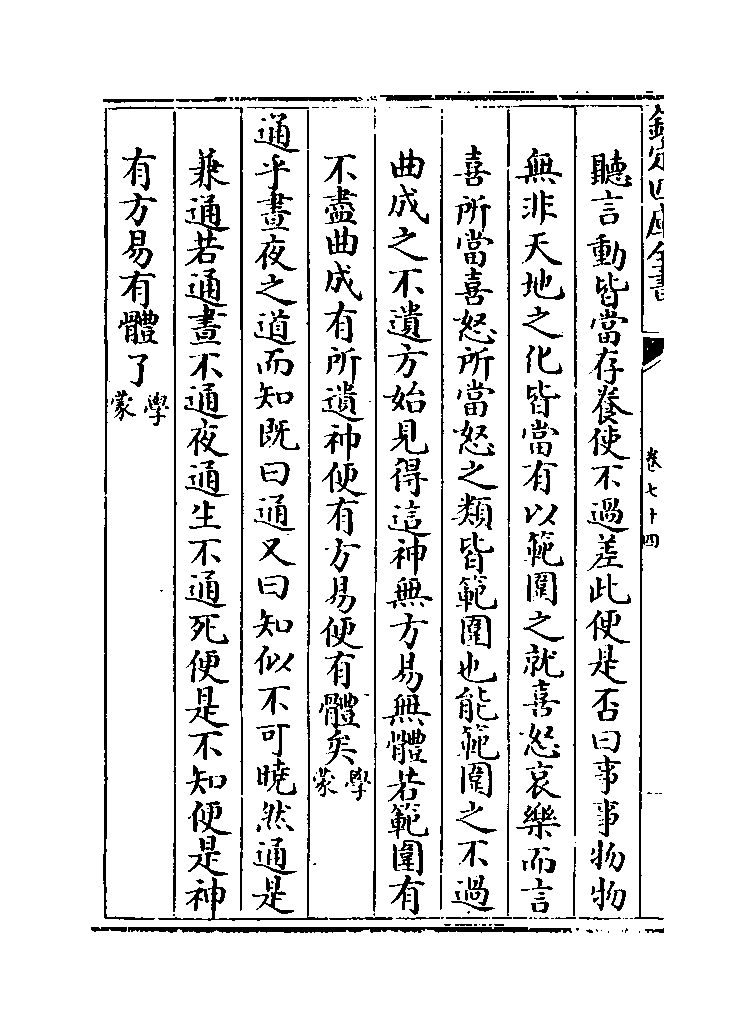 欽定四庫全書
卷七十四
聽言動皆當存養使不過差此便是否曰事事物物
無非天地之化皆當有以範圍之就喜怒哀樂而言
喜所當喜怒所當怒之類皆範圍也能範圍之不過
曲成之不遺方始見得這神無方易無體若範圍有
不盡曲成有所遺神便有方易便有體矣學蒙
通乎晝夜之道而知既曰通又曰知似不可曉然通是
兼通若通晝不通夜通生不通死便是不知便是神
有方易有體了學蒙